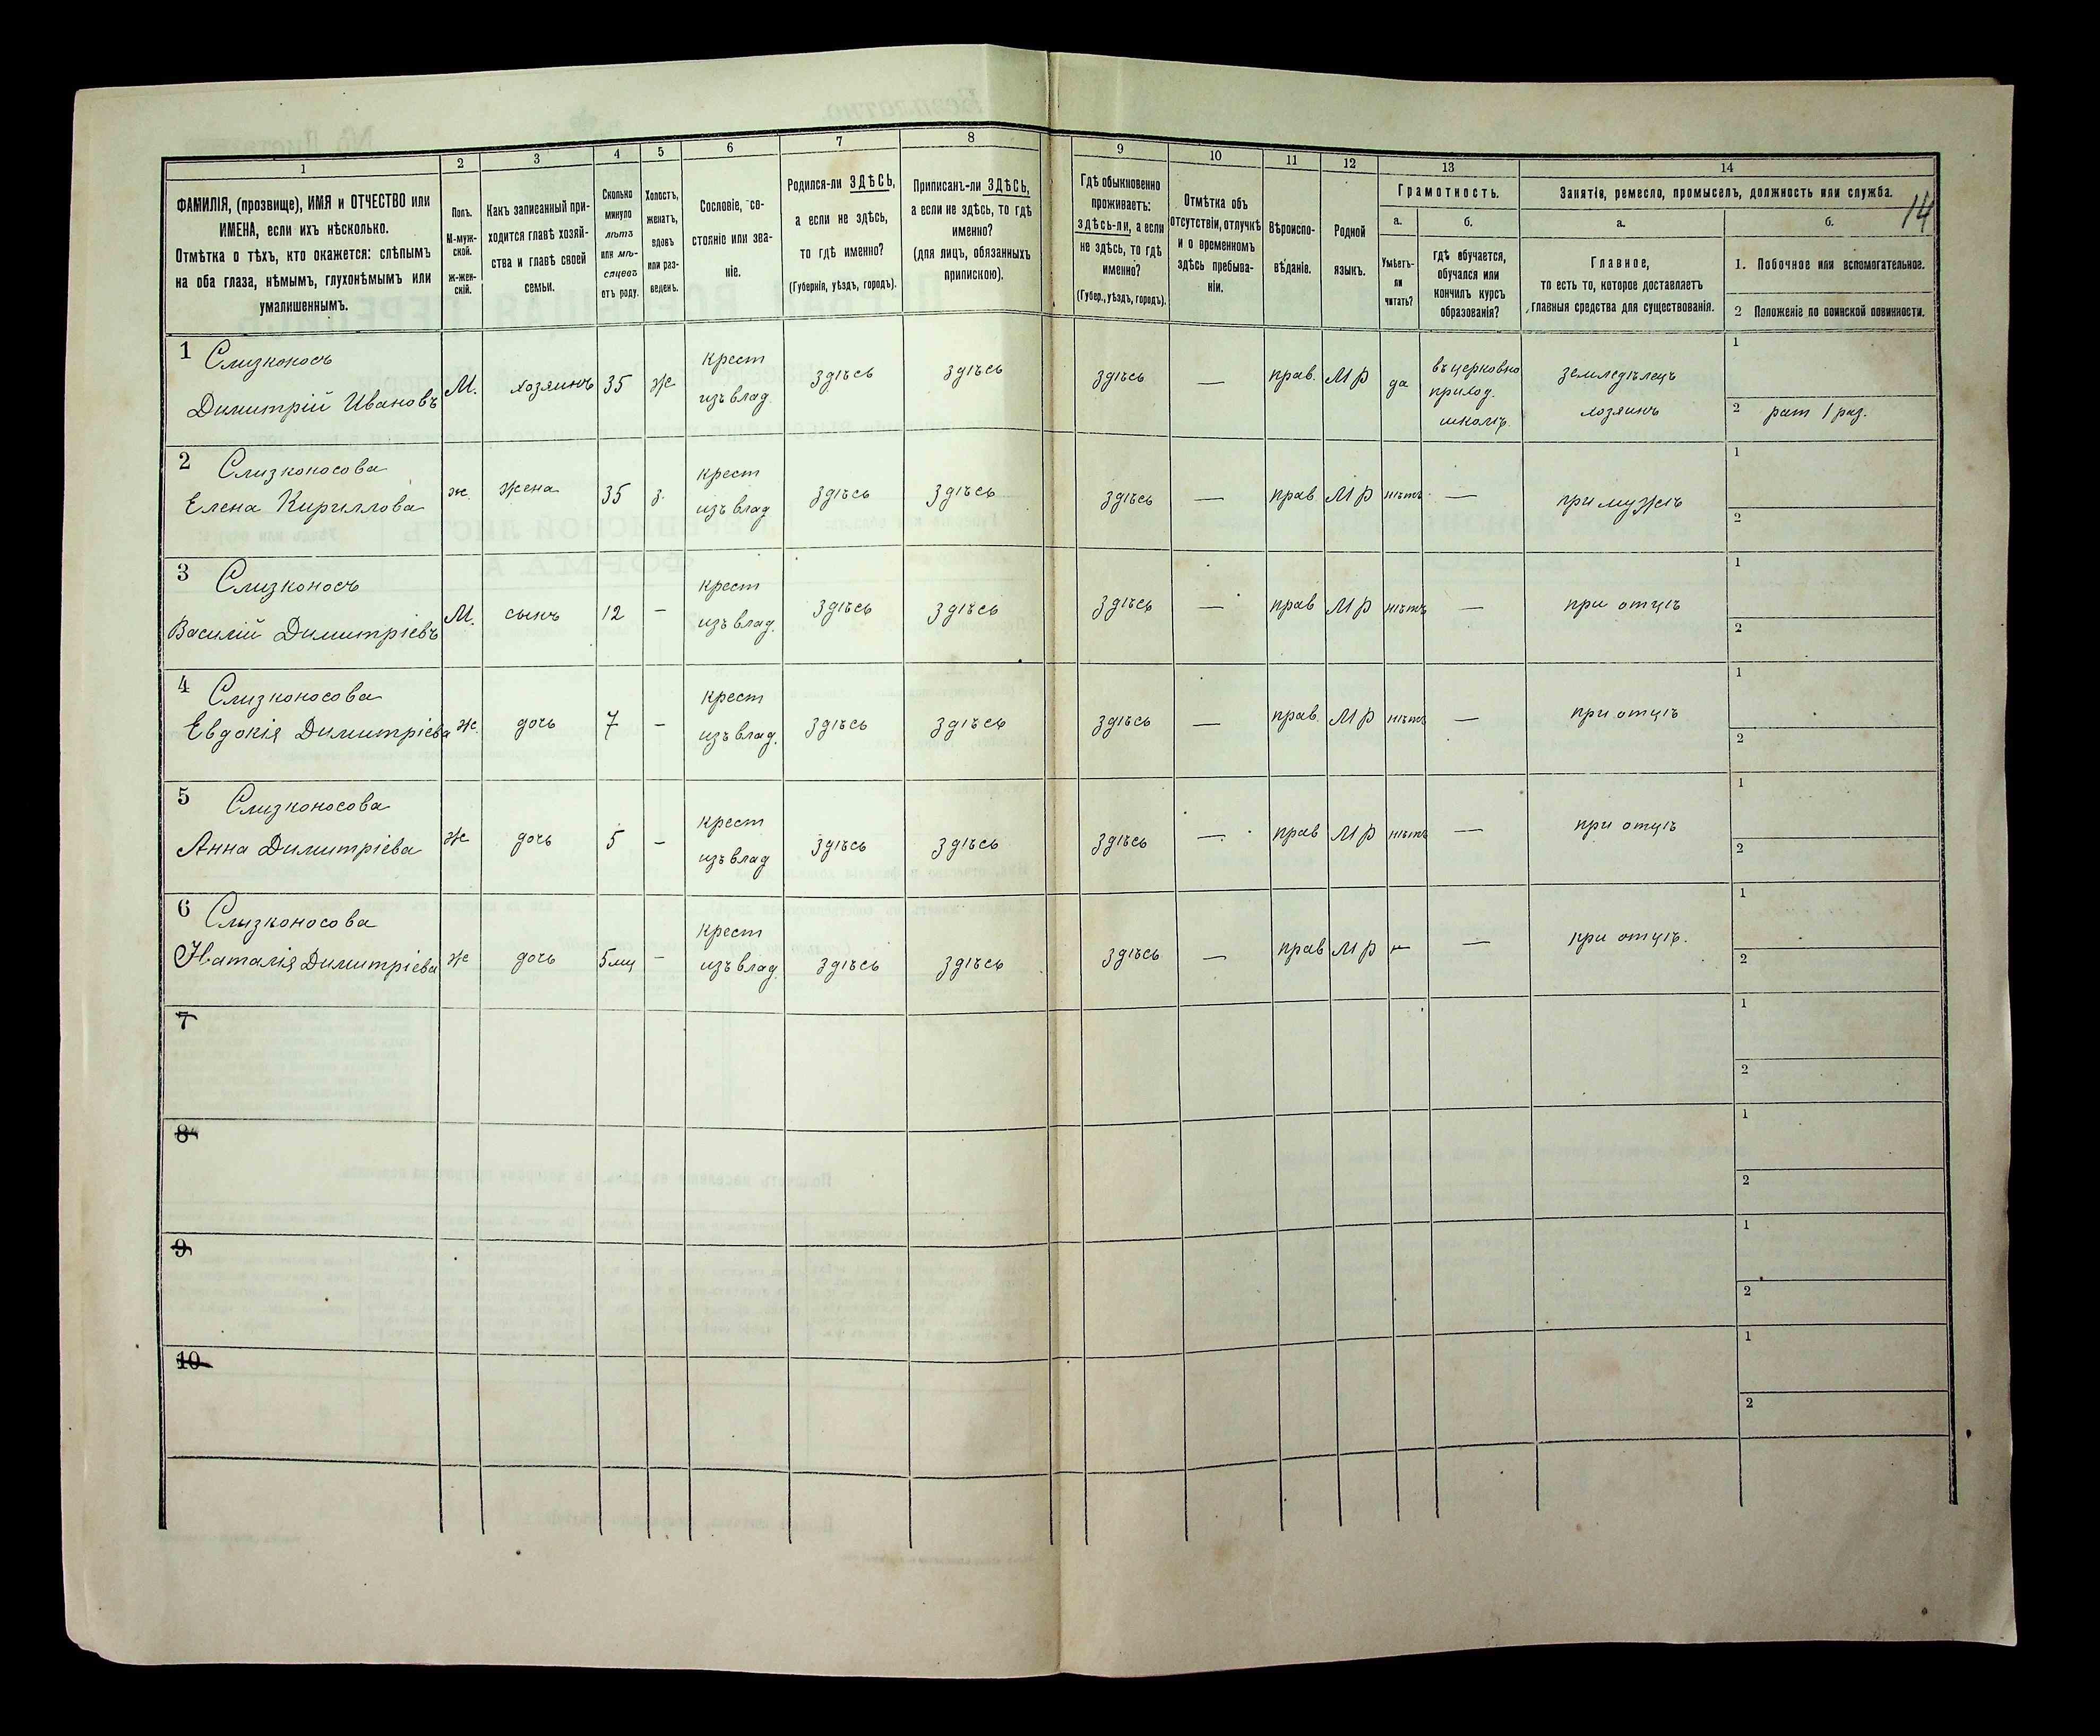 14
1 2 3 4 5 6 7 8 9 10 11 12 13 14
ФАМИЛІЯ, (прозвище), ИМЯ и ОТЧЕСТВО или
ИМЕНА, если ихъ нѣсколько.
Отмѣтка о тѣхъ, кто окажется: слѣпымъ
на оба глаза, нѣмымъ, глухонѣмымъ или
умалишеннымъ.
Полъ.
М-муж-
ской.
ж-жен-
скій.
Какъ записанный при-
ходится главѣ хозяй-
ства и главѣ своей
семьи.
Сколько
минуло
лѣтъ
или мѣ-
сяцевъ
отъ роду.
Холостъ,
женатъ,
вдовъ
или раз-
веденъ.
Сословіе, со-
стояніе или зва-
ніе.
Родился-ли ЗДѢСЬ,
а если не здѣсь,
то гдѣ именно?
(Губернія, уѣздъ, городъ).
Приписанъ-ли ЗДѢСЬ,
а если не здѣсь, то гдѣ
именно?
(для лицъ, обязанныхъ
припискою).
Гдѣ обыкновенно
проживаетъ:
ЗДѢСЬ-ли, а если
не здѣсь, то гдѣ
именно?
(Губер., уѣздъ, городъ).
Отмѣтка объ
отсутствіи, отлучкѣ
и о временномъ
здѣсь пребыва-
ніи.
Вѣроиспо-
вѣданіе.
Родной
языкъ.
Грамотность.
а.
Умѣетъ-
ли
читать?
б.
гдѣ обучается,
обучался или
кончилъ курсъ
образованія?
Занятія, ремесло, промыселъ, должность или служба.
а.
Главное,
то есть то, которое доставляетъ
главныя средства для существованія.
б.
1. Побочное или вспомогательное.
2 Положеніе по воинской повинности.
1 Слизконосъ
Димитрій Ивановъ
М.
хозяинъ
35
Ж
крест
изъ влад.
здѣсь
здѣсь
здѣсь
—
прав.
МР
да
въ церковно
приход.
школѣ.
земледѣлецъ
хозяинъ
1
2 рат 1 раз.
2 Слизконосова
Елена Кириллова
ж.
жена
35
з.
крест
изъ влад
здѣсь
здѣсь
здѣсь
—
прав
МР
нѣтъ
—
при мужѣ
1
2
3 Слизконосъ
Василій Димитріевъ
М.
сынъ
12
—
крест
изъ влад.
здѣсь
здѣсь
здѣсь
—
прав
МР
нѣтъ
—
при отцѣ
1
2
4 Слизконосова
Евдокія Димитріева
ж.
дочь
7
—
крест
изъ влад.
здѣсь
здѣсь
здѣсь
—
прав.
МР
нѣтъ
—
при отцѣ
1
2
5 Слизконосова
Анна Димитріева
Ж
дочь
5
—
крест
изъ влад
здѣсь
здѣсь
здѣсь
—
прав
МР
нѣтъ
—
при отцѣ
1
2
6 Слизконосова
Наталія Димитріева
Ж
дочь
5 мц
—
крест
изъ влад.
здѣсь
здѣсь
здѣсь
—
прав
МР
—
—
при отцѣ.
1
2
7
1
2
8
1
2
9
1
2
10
1
2